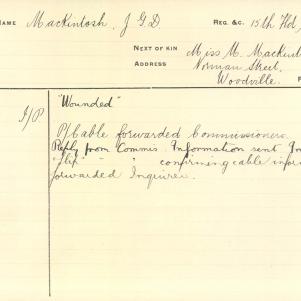 NAME Mackintosh, J G D. REG. &C. 15th Fld
NEXT OF KIN Miss M. Mackint
ADDRESS Norman Street,
Woodville.
"Wounded"
I/P P/Cable forwarded Commissioners.
Reply from Commis. Information sent
" " confirming cable infor
forwarded Inquirer.